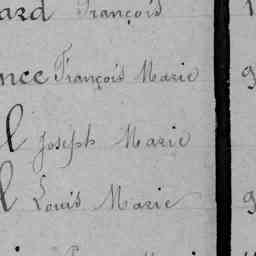 ard François
nce François Marie 9
l Joseph Marie
l Louis Marie 9